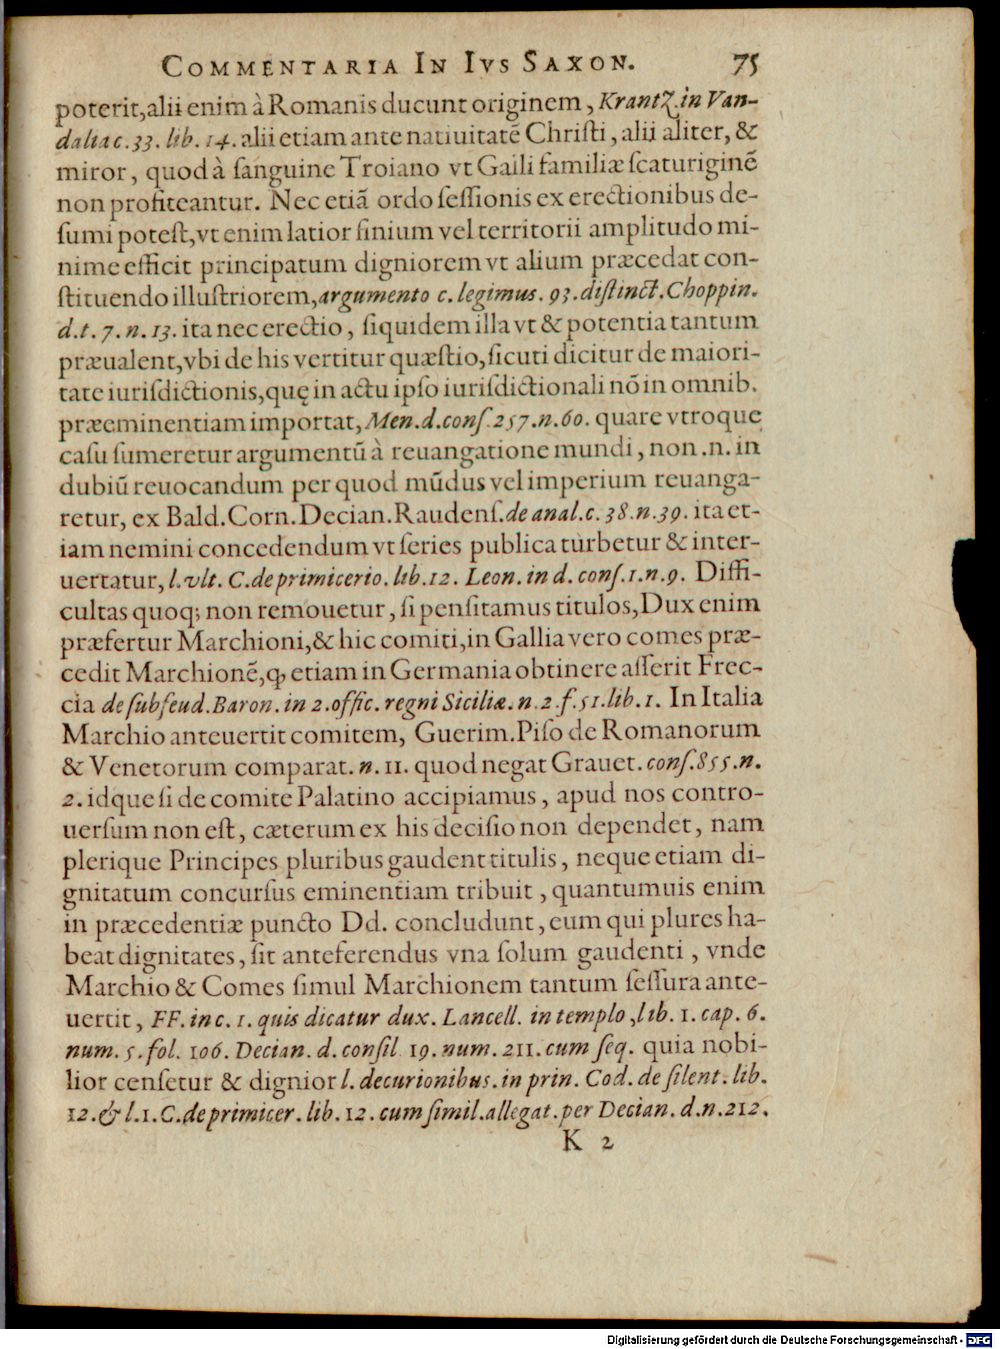 COMMENTARIA IN IVS SAXON. 75
poterit, alii enim à Romanis ducunt originem, Krantz. in Van-
dalia c. 33. lib. 14. alii etiam ante natiuitatē Christi, alii aliter, &
miror, quod à sanguine Troiano vt Galli familiæ scaturiginē
non profiteantur. Nec etiā ordo sessionis ex erectionibus de-
sumi potest, vt enim latior finium vel territorii amplitudo mi-
nime efficit principatum digniorem vt alium præcedat con-
stituendo illustriorem, argumento c. legimus. 93. distinct. Choppin.
d. t. 7. n. 13. ita nec erectio, siquidem illa vt & potentia tantum
præualent, vbi de his vertitur quæstio, sicuti dicitur de maiori-
tate iurisdictionis, quę in actu ipso iurisdictionali nō in omnib.
præeminentiam importat, Men. d. cons. 257. n. 60. quare vtroque
casu sumeretur argumentū à reuangatione mundi, non .n. in
dubiū reuocandum per quod mūdus vel imperium reuanga-
retur, ex Bald. Corn. Decian. Raudens. de anal. c. 38. n. 39. ita et-
iam nemini concedendum vt series publica turbetur & inter-
uertatur, l. vlt. C. de primicerio. lib. 12. Leon. in d. cons. 1. n. 9. Diffi-
cultas quoq; non remouetur, si pensitamus titulos, Dux enim
præfertur Marchioni, & hic comiti, in Gallia vero comes præ-
cedit Marchionē, ꝙ etiam in Germania obtinere asserit Frec-
cia de subfeud. Baron. in 2. offic. regni Siciliæ. n. 2. f. 51. lib. 1. In Italia
Marchio anteuertit comitem, Guerim. Piso de Romanorum
& Venetorum comparat. n. 11. quod negat Grauet. cons. 855. n.
2. idque si de comite Palatino accipiamus, apud nos contro-
uersum non est, cæterum ex his decisio non dependet, nam
plerique Principes pluribus gaudent titulis, neque etiam di-
gnitatum concursus eminentiam tribuit, quantumuis enim
in præcedentiæ puncto Dd. concludunt, eum qui plures ha-
beat dignitates, sit anteferendus vna solum gaudenti, vnde
Marchio & Comes simul Marchionem tantum sessura ante-
uertit, FF. in c. 1. quis dicatur dux. Lancell. in templo, lib. 1. cap. 6.
num. 5. fol. 106. Decian. d. consil 19. num. 211. cum seq. quia nobi-
lior censetur & dignior l. decurionibus. in prin. Cod. de silent. lib.
12. & l. 1. C. de primicer. lib. 12. cum simil. allegat. per Decian. d. n. 212.
K 2
Digitalisierung gefördert durch die Deutsche Forschungsgemeinschaft - DFG